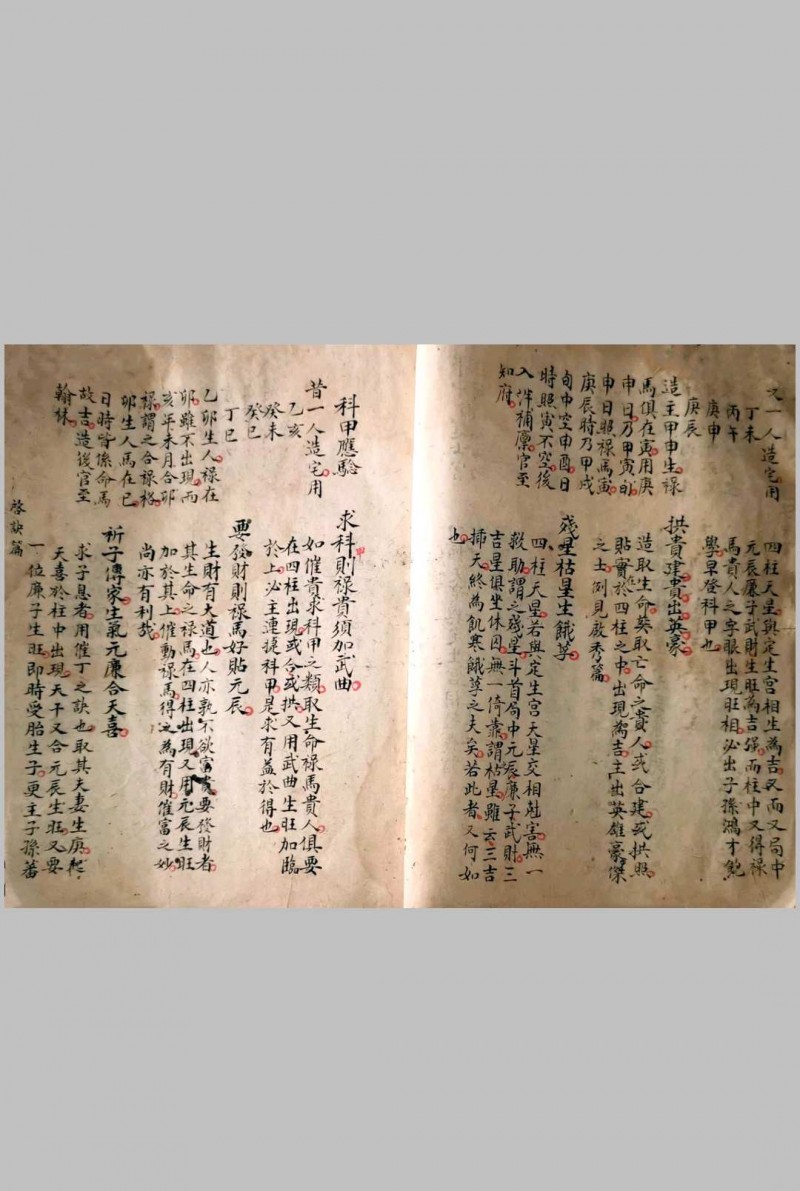 又一人造宅用
丁未
丙午
庚申
庚辰
造主甲申生禄
馬俱在寅用庚
申日乃甲寅旬
申日照禄馬寅
庚辰時乃甲戌
旬中空申酉日
時照寅不空後
入泮補廪官至
知府
四柱天星與定生宮相生為吉又而又局中
元辰廉子武財生旺為吉強而柱中又得禄
馬貴人之字眼出現旺相必出子孫鴻才飽
學早登科甲也
拱貴建貴出英豪
造取生命莫取亡命之貴人或合建或拱照
貼實於四柱之中出現為吉主出英雄豪傑
之士例見啟秀篇
殘星枯星生餓莩
四柱天星若與定生宮天星交相尅害無一
救助謂之殘星斗首局中元辰廉子武財三
吉星俱坐休囚無一倚靠謂枯星雖云三吉
挿天終為飢寒餓莩之夫矣若此者又何如
也
科甲應驗
昔一人造宅用
乙亥
癸未
癸巳
丁巳
乙卯生人禄在
卯雖不出現而
亥年未月合卯
禄謂之合禄格
卯生人馬在巳
日時皆係命馬
故吉造後官至
翰林
求科甲則禄貴須加武曲
如催貴求科甲之類取生命禄馬貴人俱要
在四柱出現或合或拱又用武曲生旺加臨
於上必主連捷科甲是求有益於得也
要發財則禄馬好貼元辰
生財有大道也人亦孰不欲富貴要發財者
其生命之禄馬在四柱出現又用元辰生旺
加於其上催動禄馬得之為有財催富之妙
尚亦有利哉
祈子傳家生氣元廉合天喜
求子息者用催丁之訣也取其夫妻生庚
天喜於柱中出現天干又合元辰生旺又要
一位廉子生旺即時受胎生子更主子孫蕃
啓訣篇